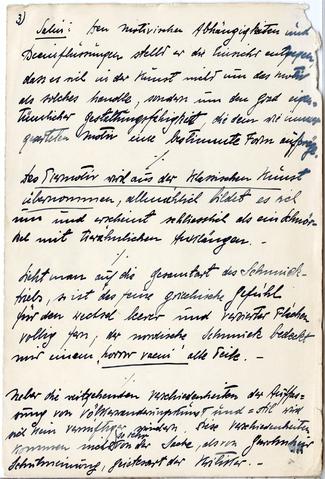 3)
Salin: Den motivischen Abhängigkeiten und
Beeinflussungen stellt er die Einsicht entgegen
dass es sich in der Kunst nicht um das Motiv
als solches handle, sondern um den Grad eigen-
tümlicher Gestaltungsfähigkeit, die dem wie immer
gearteten Motiv eine bestimmte Form aufpräge.
Das Tiermotiv wird aus der klassischen Kunst
übernommen, allmählich bildet es sich
um und erscheint schliesslich als ein Schnör-
kel mit tierähnlichen Anklängen. –
Sieht man auf die Gesamtart des Schmuck-
triebs, so ist das feine griechische Gefühl
für den Wechsel leerer und verzierter Flächen
völlig fern, der nordische Schmuck bedeckt
mit einem horror vacui alle Teile. –
Ueber die weitgehenden Verschiedenheiten der Auffas-
sung von Völkerwanderungskunst und -Stil wird
sich kein Vernünftiger wundern. Diese Verschiedenheiten
kommen nicht so sehr von der Sache, als von
Schulmeinung, Geistesart der Kritiker. –